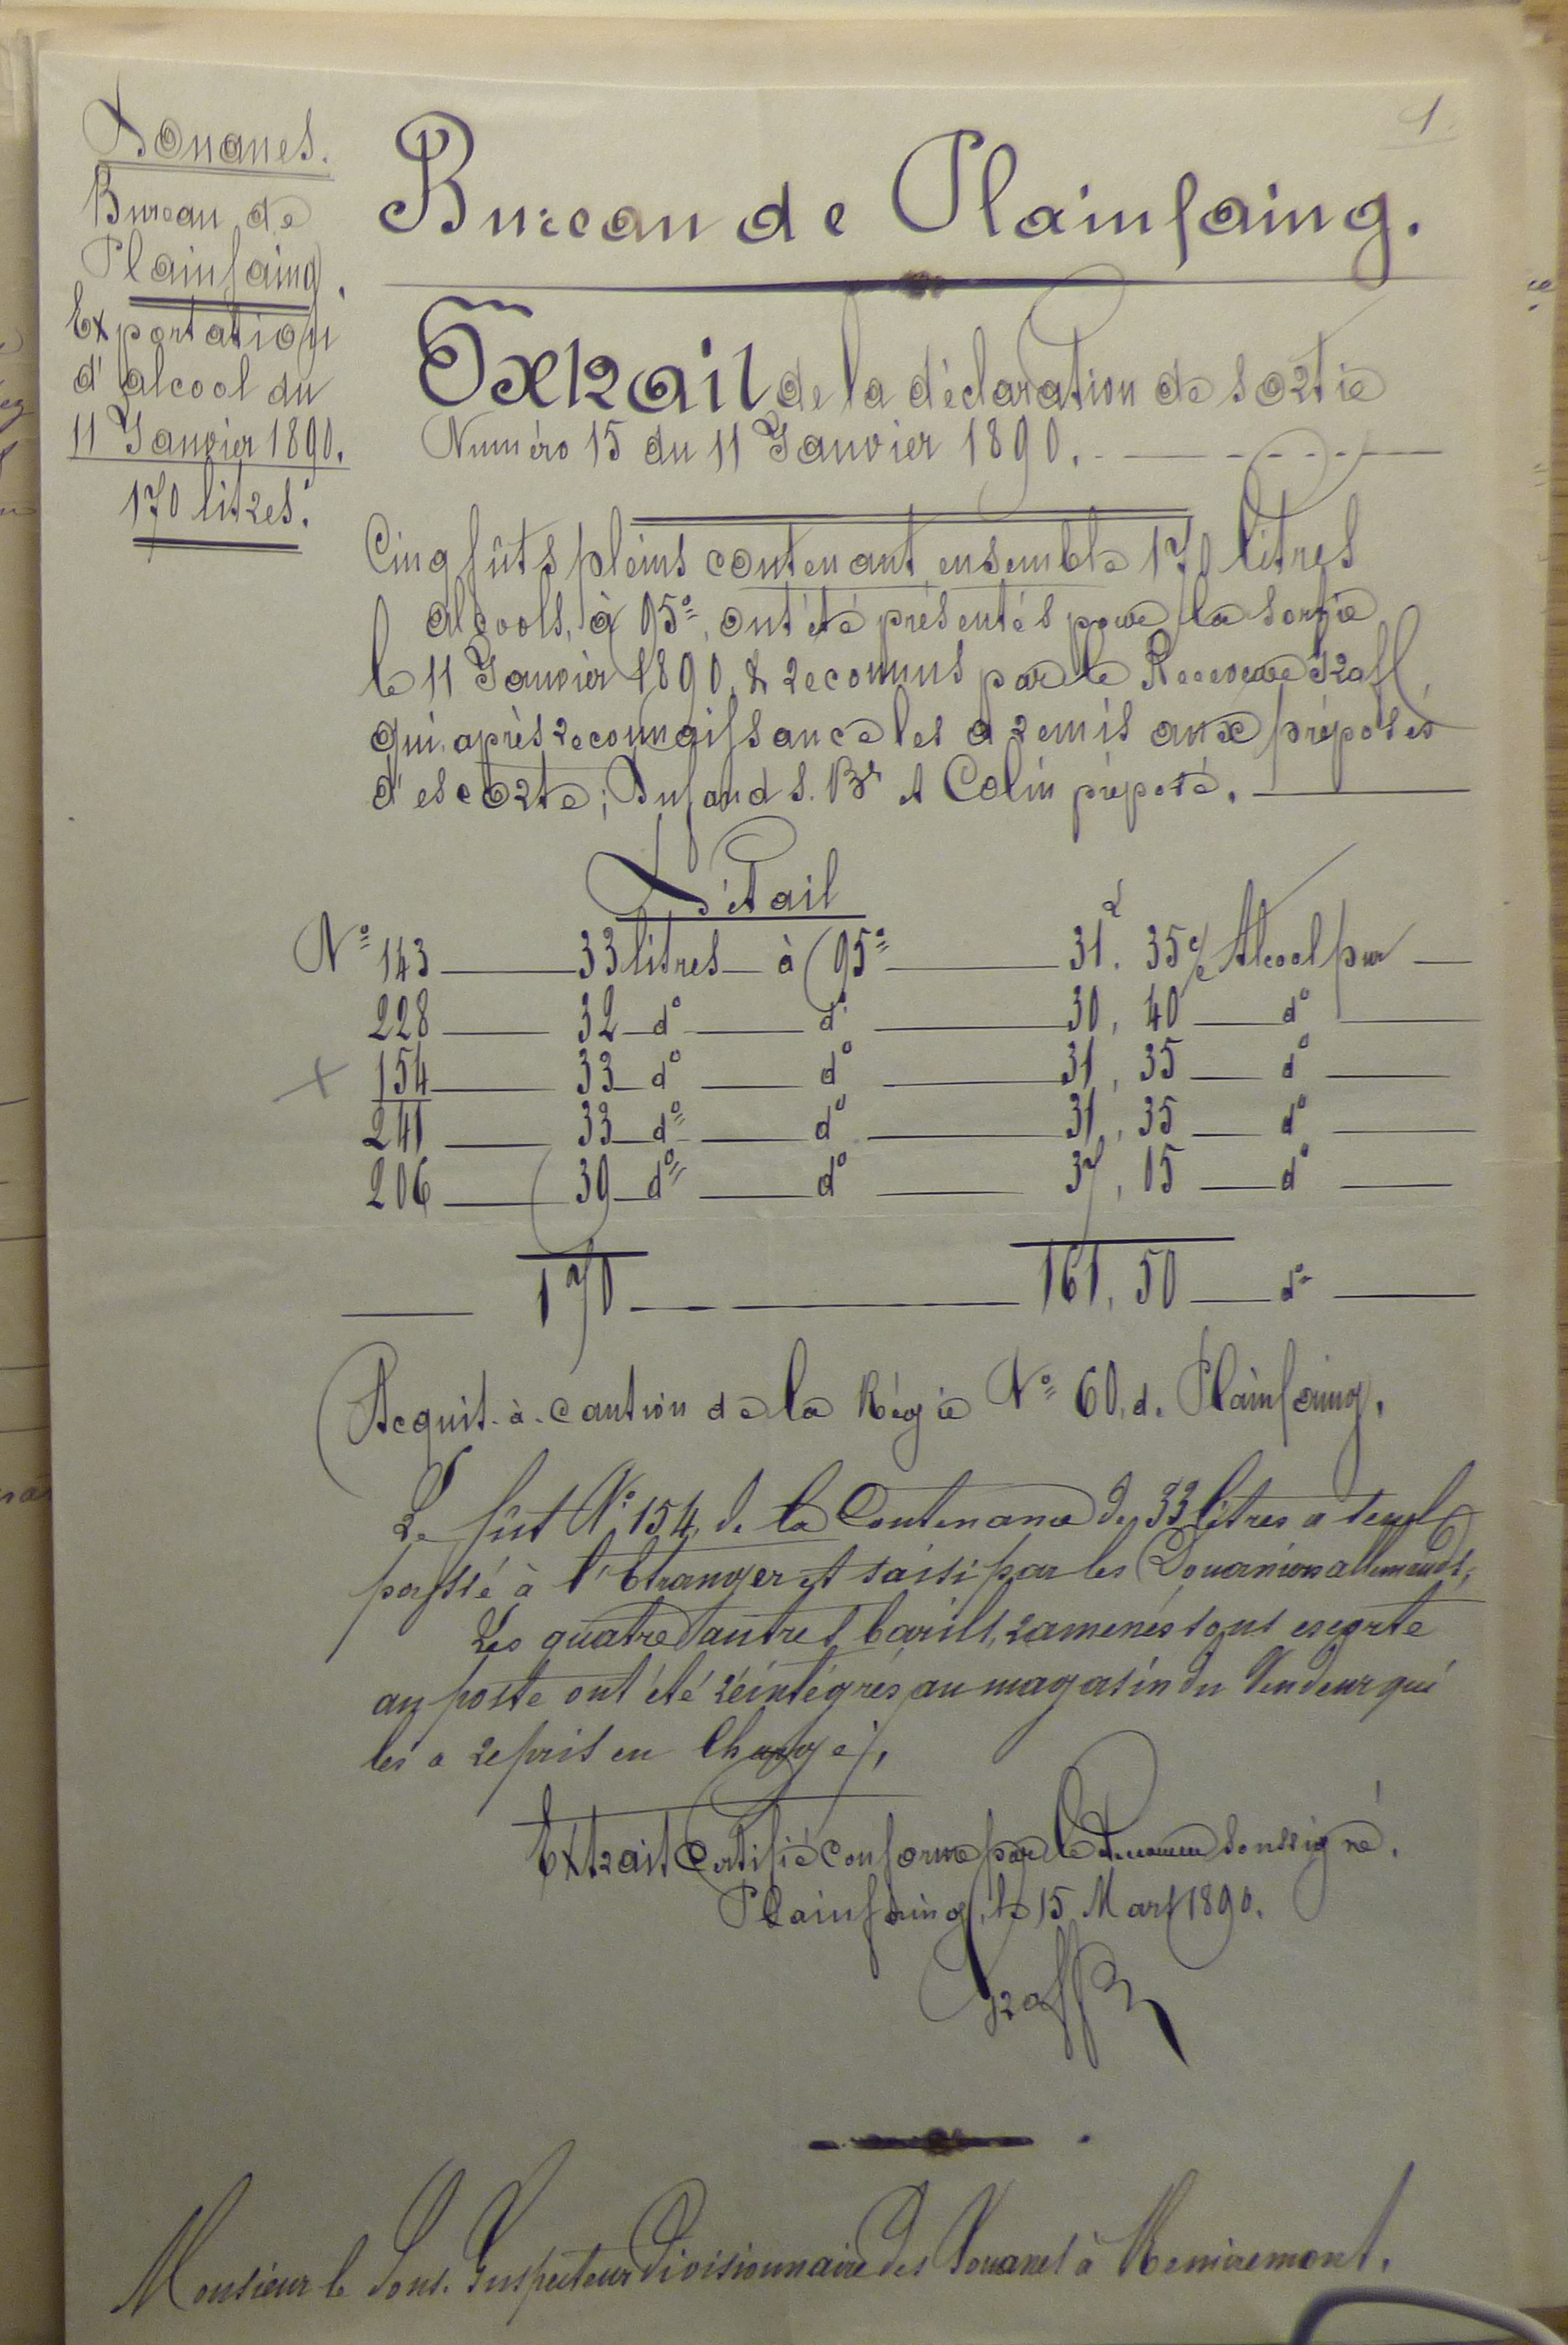 1.
Douanes.
Bureau de
Plainfaing.
Exportation
d'alcool du
11 Janvier 1890.
170 litres.
Bureau de Plainfaing.
Extrait de la déclaration de sortie
Numéro 15 du 11 Janvier 1890.
Cinq fûts pleins contenant ensemble 170 litres
alcools, à 95°, ont été présentés pour la sortie
le 11 Janvier 1890, & reconnus par le Receveur
qui, après reconnaissance les a remis aux préposés
d'escorte; S. Br et Colin préposé.
Détail
N° 143 33 litres à 95° 31l. 35c Alcool pur
228 32 d° d° 30, 40 d°
x 154 33 d° d° 31, 35 d°
241 33 d° d° 31, 35 d°
206 39 d° d° 37, 05 d°
170 161, 50 d°
Acquit-à-caution de la Régie N° 60, d. Plainfaing.
Le fût N° 154, de la Contenance de 33 litres a seul
passé à l'Etranger et saisi par les Douaniers allemands;
Les quatre autres barils, ramenés sous escorte
au poste ont été réintégrés au magasin du Vendeur qui
les a repris en Charge.
Extrait Certifié conforme par le Receveur soussigné.
Plainfaing, le 15 Mars 1890.
Monsieur le Sous-Inspecteur Divisionnaire des Douanes à Remiremont.